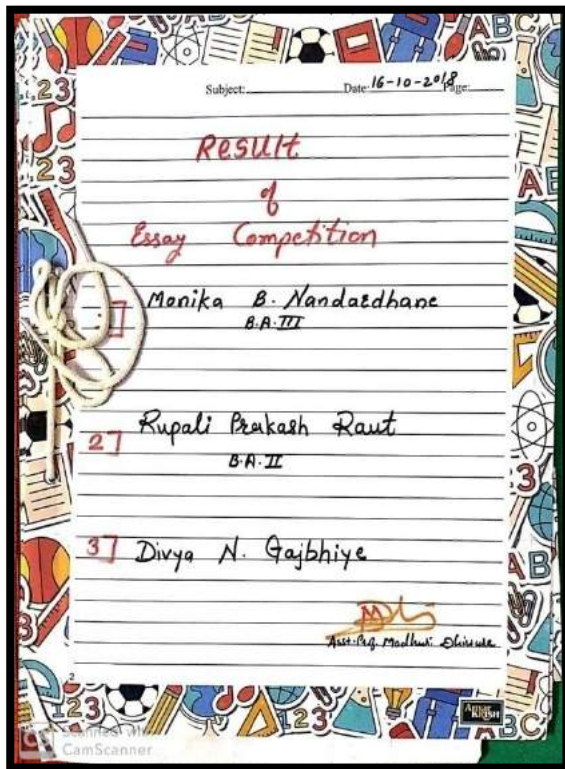 Subject: Date: 16-10-2018 Page:
Result
of
Essay Competition
Monika B. Nandardhane
B.A.III
2] Rupali Prakash Raut
B.A.II
3] Divya N. Gajbhiye
Asst. Prof. Madhuri
2
Amar
KRISH
Scanned with
CamScanner